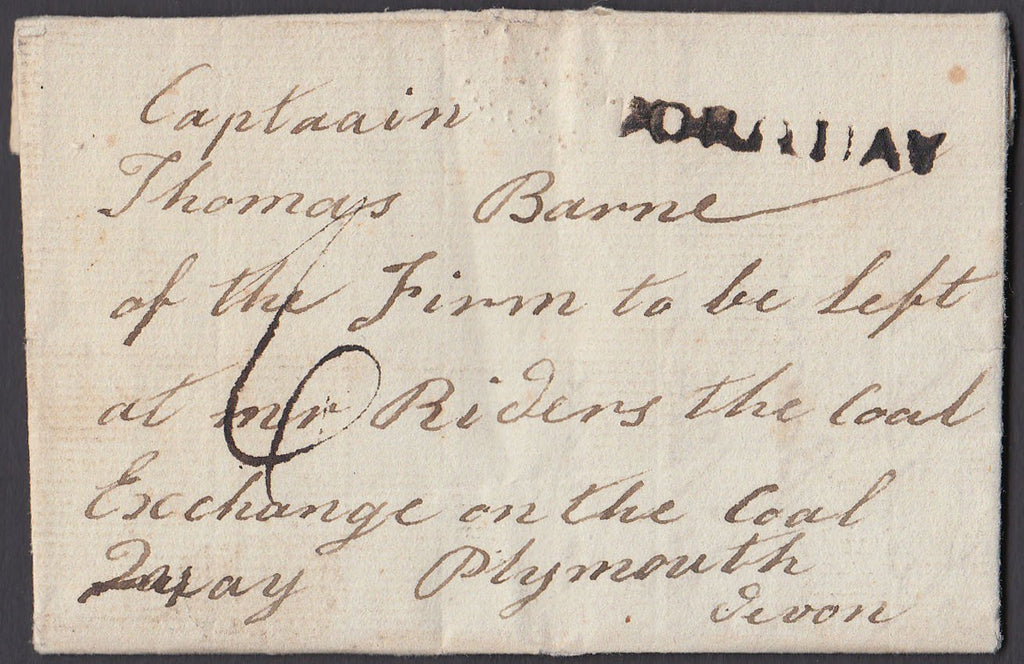 Captaain
Thomas Barne
of the Firm to be Left
at mr Riders the Coal
Exchange on the Coal
Quay Plymouth
devon
6